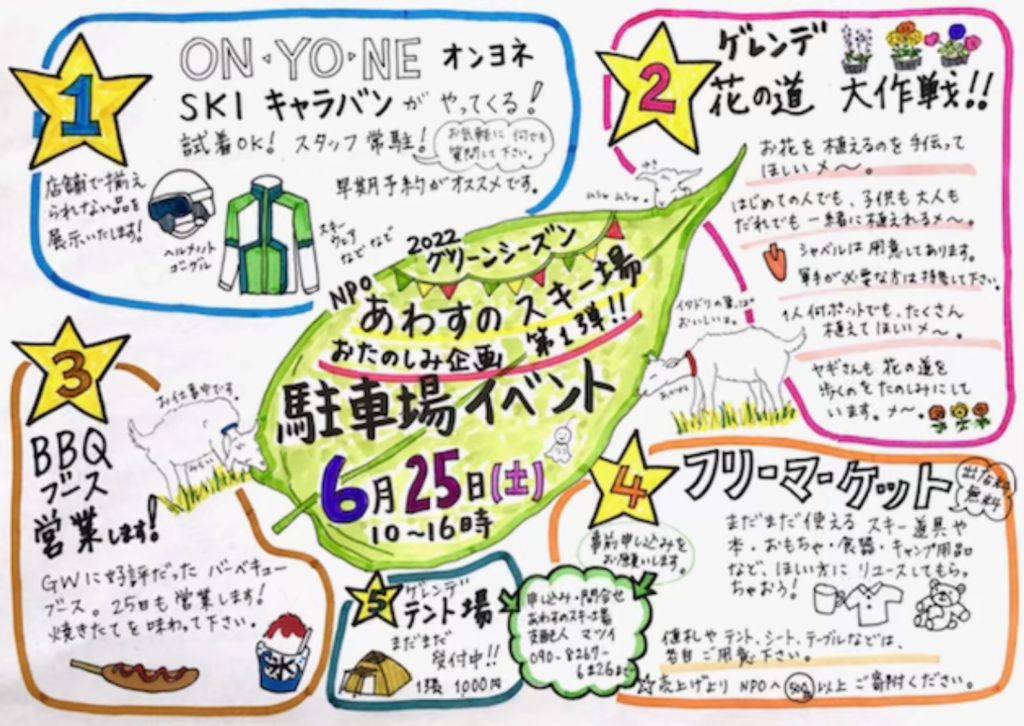 1
ON・YO・NE オンヨネ
SKI キャラバンがやってくる!
試着OK! スタッフ常駐!
お気軽に何でも
質問して下さい。
早期予約がオススメです。
店舗で揃え
られない品を
展示いたします!
ヘルメット
ゴーグル
スキー
ウェア
などなど
2
ゲレンデ
花の道 大作戦!!
お花を植えるのを手伝って
ほしいメ〜。
はじめての人でも、子供も大人も
だれでも一緒に植えれるメ〜。
シャベルは用意してあります。
軍手が必要な方は持参して下さい。
1人何ポットでも、たくさん
植えてほしいメ〜。
ヤギさんも花の道を
歩くのをたのしみにして
います。メ〜。
イタドリの葉は
おいしいよ。
2022
グリーンシーズン
NPO
あわすのスキー場
おたのしみ企画 第1弾!!
駐車場イベント
6月25日(土)
10〜16時
3
BBQ
ブース
営業します!
お仕事中です。
GWに好評だったバーベキュー
ブース。25日も営業します!
焼きたてを味わって下さい。
氷
4
フリーマーケット
出店料
無料
事前申し込みを
お願いします。
まだまだ使えるスキー道具や
本・おもちゃ・食器・キャンプ用品
など、ほしい方にリユースしてもらっ
ちゃおう!
値札やテント、シート、テーブルなどは、
各自ご用意下さい。
☆売上げよりNPOへ500円以上ご寄附ください。
5
ゲレンデ
テント場
まだまだ
受付中!!
1張 1000円
申し込み・問合せ
あわすのスキー場
支配人 マツイ
090-8267-
6126まで